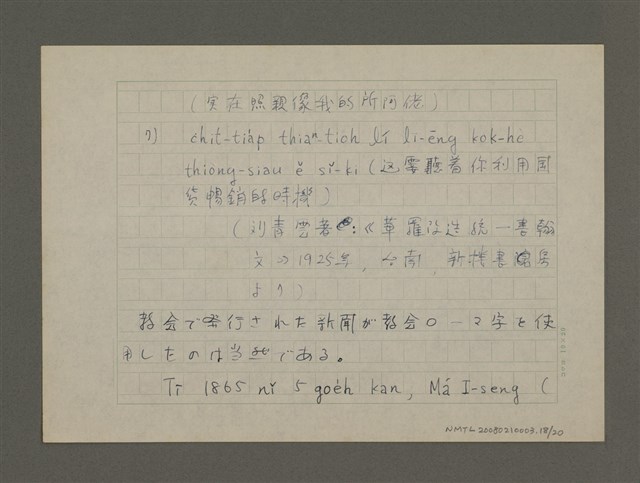 (実在照親像我的所阿佬)
7) chit-tia̍p thiaⁿ-tio̍h lí lī-ēng kok-hè
thiòng-siau ê sî-ki (这霎聽着你利用国
货暢銷的時機)
(刘青雲著:《華羅改造統一書翰
文》1925年, 台南, 新楼書房
より)
教会で発行された新聞が教会ローマ字を使
用したのは当然である。
Tī 1865 nî 5 goe̍h kan, Má I-seng (
NMTL20050210003.18/20